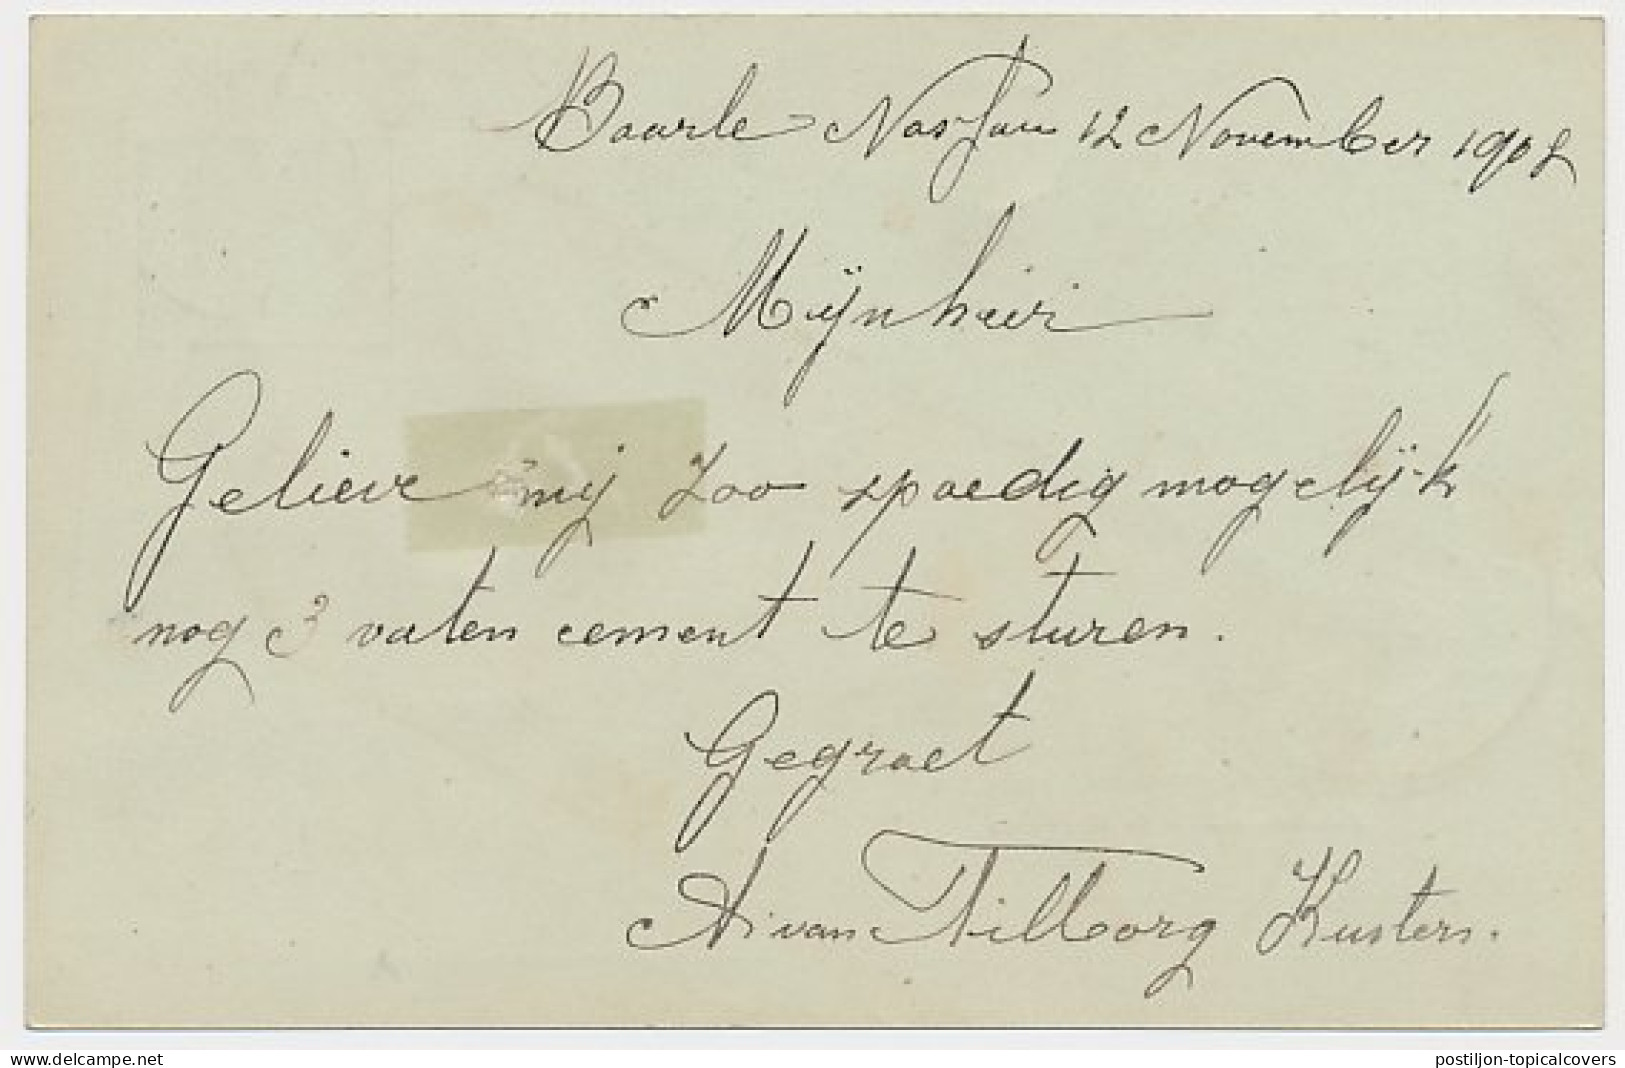 Baarle Nassau 12 November 1902
Mijnheer
Gelieve mij zoo spoedig mogelijk
nog 3 vaten cement te sturen.
Gegroet
A. van Tilborg Kusters.
delcampe.net
postiljon-topicalcovers